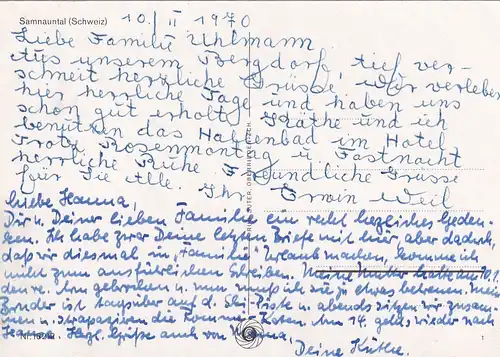 Samnauntal (Schweiz)
10./II 1970
Liebe Familie Uhlmann
Aus unserem Bergdorf, tief ver-
schneit herzliche Grüsse. Wir verleben
hier herrliche Tage und haben uns
schon gut erholt. Käthe und ich
benützen das Hallenbad im Hotel
Trotz Rosenmontag u Fastnacht
herrliche Ruhe Freundliche Grüsse
für Sie Alle. Ihr Erwin Weil
Liebe Hanna,
Dir u. Deiner lieben Familie ein recht herzliches Geden-
ken. Ich habe zwar Deine letzten Briefe mit hier aber dadurch,
daß wir diesmal in „Familie" Urlaub machen, komme ich
nicht zum ausführlichen Schreiben.
gebrochen u. nun muß ich sie etwas betreuen. Mein
Bruder ist tagsüber auf d. Ski-Piste u. abends sitzen wir zusam-
men u. strapazieren die Am 14. geht's wieder nach
Grüße auch von
Deine Käthe.
1